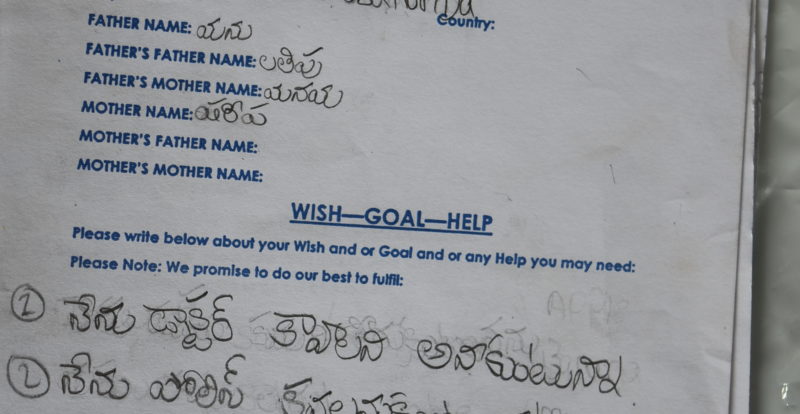 Country:
FATHER NAME: యను
FATHER'S FATHER NAME: లతిపు
FATHER'S MOTHER NAME: యనయ
MOTHER NAME:
MOTHER'S FATHER NAME:
MOTHER'S MOTHER NAME:
WISH—GOAL—HELP
Please write below about your Wish and or Goal and or any Help you may need:
Please Note: We promise to do our best to fulfil:
① నేను డాక్టర్ కావాలని అనాకుంటున్నా
② నేను